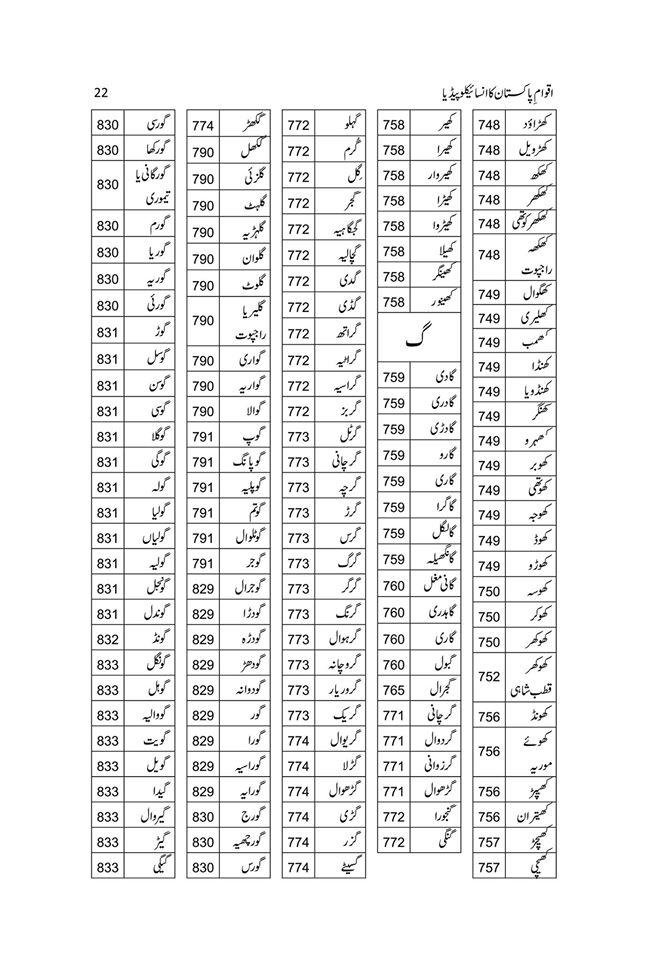 اقوامِ پاکستان کا انسائیکلوپیڈیا 22
کھڑاؤد 748
کھڑویل 748
کھکھ 748
کھکھر 748
کھکھر کوتھی 748
کھکھہ راجپوت 748
کھگوال 749
کھلیری 749
کھمب 749
کھنڈا 749
کھنڈویا 749
کھنگر 749
کھہرو 749
کھوبر 749
کھوتھی 749
کھوجہ 749
کھوڈ 749
کھوڑو 749
کھوسہ 750
کھوکر 750
کھوکھر 750
کھوکھر قطب شاہی 752
کھونڈ 756
کھوئے موریہ 756
کھیپڑ 756
کھیتران 756
کھیچڑ 757
کھچی 757
کھیر 758
کھیرا 758
کھیروار 758
کھیڑا 758
کھیڑوا 758
کھیلا 758
کھینگر 758
کھینور 758
گ
گادی 759
گادری 759
گادڑی 759
گارو 759
گاری 759
گاگرا 759
گالگل 759
گانگھیلہ 759
گانی مغل 760
گاہدری 760
گاری 760
گبول 760
گجرال 765
گرچانی 771
گردوال 771
گرزوانی 771
گڑھوال 771
گنجورا 772
گنگی 772
گہلو 772
گرم 772
گل 772
گجر 772
گجگاہیہ 772
گچالیہ 772
گدی 772
گڈی 772
گراتھ 772
گراٹیہ 772
گراسیہ 772
گربز 772
گرٹل 773
گرچانی 773
گرچہ 773
گرڑ 773
گرس 773
گرگ 773
گرگر 773
گرنگ 773
گرہوال 773
گروچانہ 773
گروریار 773
گریک 773
گریوال 774
گڑلا 774
گڑھوال 774
گڑی 774
گزر 774
گسیٹے 774
گکھڑ 774
گکھل 790
گلزئی 790
گلہٹ 790
گلہڑیہ 790
گلوان 790
گلوٹ 790
گلیریا راجپوت 790
گواری 790
گواریہ 790
گوالا 790
گوپ 791
گوپانگ 791
گوپلیہ 791
گوتم 791
گوٹلوال 791
گوجر 791
گوجرال 829
گودڑا 829
گودڑہ 829
گودھڑ 829
گودوانہ 829
گور 829
گورا 829
گوراسیہ 829
گورایہ 829
گورج 830
گورچھیہ 830
گورس 830
گورسی 830
گورکھا 830
گورگانی یا تیموری 830
گورم 830
گوریا 830
گوریہ 830
گورئی 830
گوڑ 831
گوسل 831
گوسن 831
گوسی 831
گوگلا 831
گوگی 831
گولہ 831
گولیا 831
گولیاں 831
گولیہ 831
گونجل 831
گوندل 831
گونڈ 832
گونگل 833
گوہل 833
گووالیہ 833
گویت 833
گویل 833
گیدا 833
گیروال 833
گیڑ 833
گیگی 833